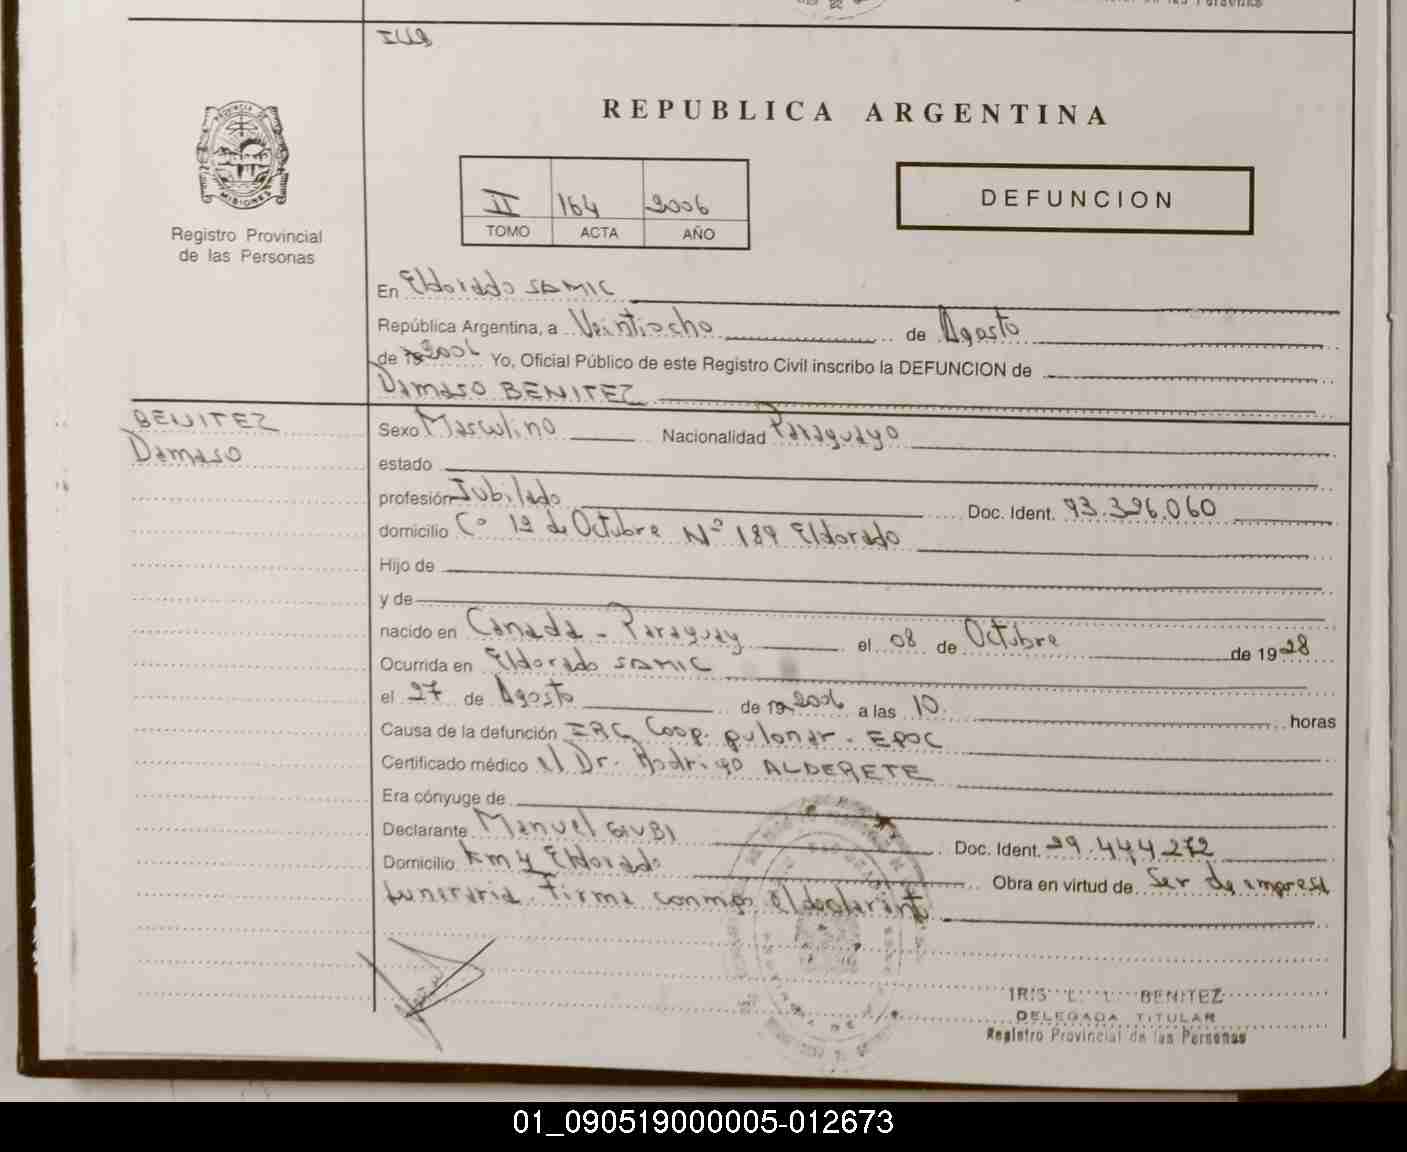 REPUBLICA ARGENTINA
MISIONES
Registro Provincial
de las Personas
II 164 2006
TOMO ACTA AÑO
DEFUNCION
En Eldorado SAMIC
República Argentina, a Veintiocho de Agosto
de 2006 Yo, Oficial Público de este Registro Civil inscribo la DEFUNCION de
Damaso BENITEZ
BENITEZ
Damaso
Sexo Masculino Nacionalidad Paraguayo
estado
profesión Jubilado Doc. Ident. 93.396.060
domicilio Cº 12 de Octubre Nº 189 Eldorado
Hijo de
y de
nacido en Canada - Paraguay el 08 de Octubre de 1928
Ocurrida en Eldorado SAMIC
el 27 de Agosto de 19 2006 a las 10 horas
Causa de la defunción Coop. pulonar - EPOC
Certificado médico el Dr. Rodrigo ALDERETE
Era cónyuge de
Declarante Manuel GIUBI Doc. Ident. 29.444.272
Domicilio km 4 Eldorado Obra en virtud de Ser de empresa
funeraria. Firma conmigo el declarante
IRIS L. L. BENITEZ
DELEGADA TITULAR
Registro Provincial de las Personas
01_090519000005-012673